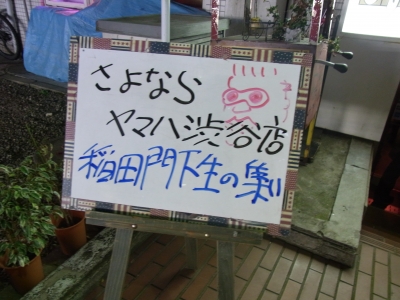 さよなら
ヤマハ渋谷店
稲田門下生の集い